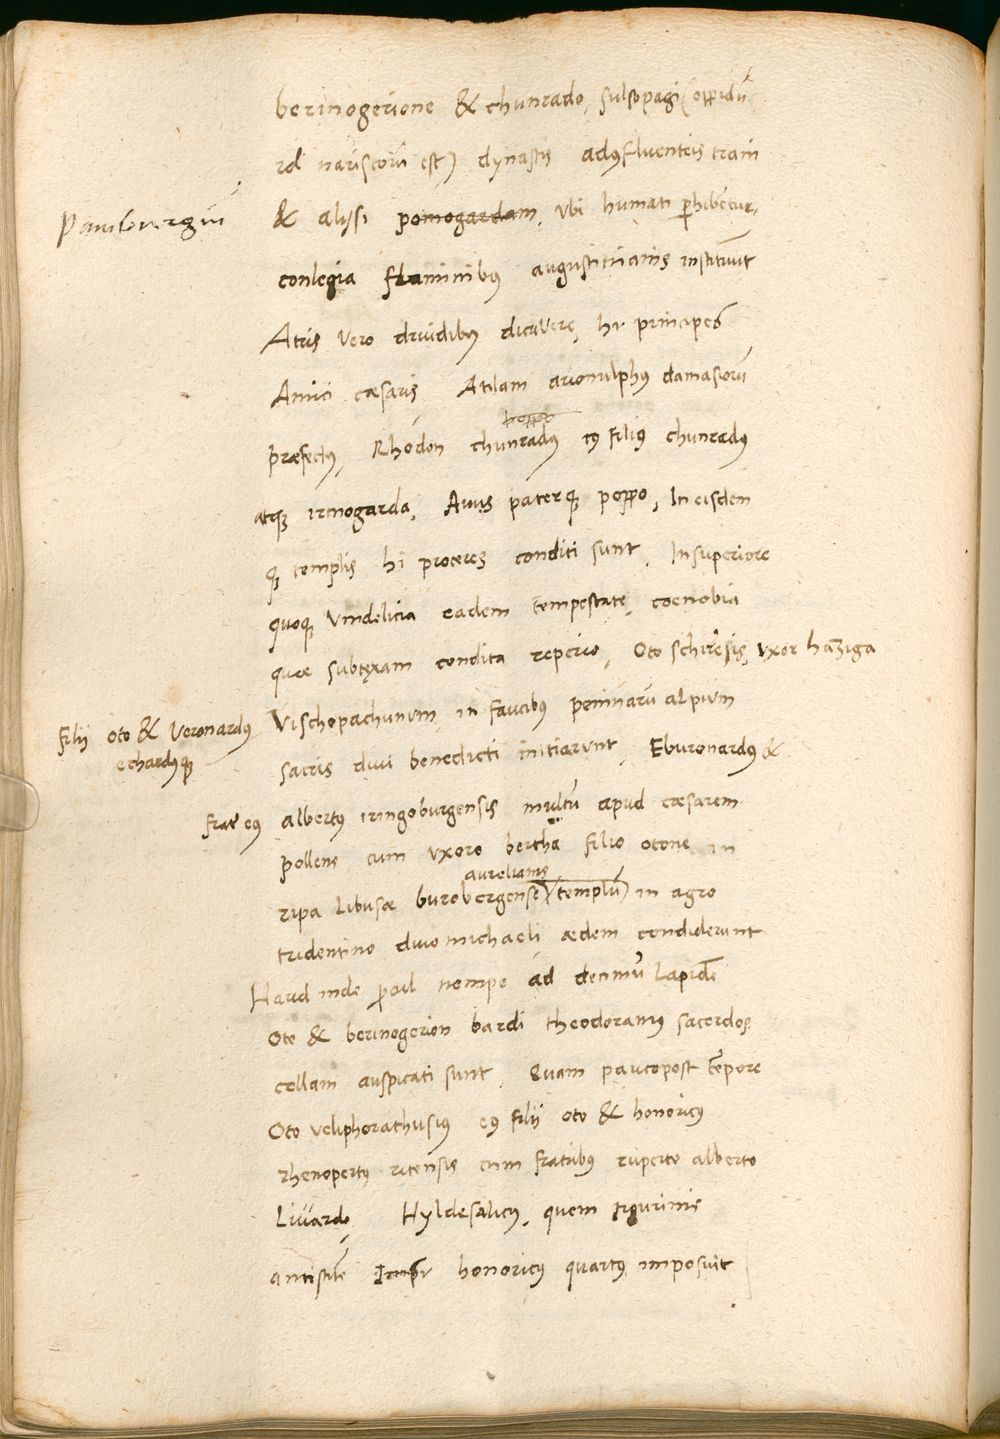 berinogerione & chunrado, sulsopagi (oppidū
rd nariscorū est) dynastis adusfluenteis train
Pamburgiū
& alissi pomogardam, Vbi humati phibētur,
conlegia flaminibus augustinianis instituūt
Atris vero druidibus dicavere, hi principes
Amici cæsaris Atilam arionulphus damasiorū
poppo
præfectus, Rhodon chunradus eius filius chunradus
atque irmogarda, Avus paterque poppo, In eisdem
que templis hi proceres conditi sunt, In superiore
quoque Vindelicia eadem tempestate, coenobia
quæ subtexam condita reperio, Oto schirēsis, vxor haziga
Vischopachunum, in faucibus peninarū alpium
filij oto & Veronardus
echardusque
sacris divi benedicti initiarunt, Eburonardus &
frater eius
albertus iringoburgensis multū apud cæsarem
pollens cum vxore bertha filio otone in
aurelianis
ripa Libusæ burobergense (templū) in agro
tridentino divo michaeli ædem condiderunt
Haud inde pcul nempe ad decimū Lapidē
Oto & berinogerion bardi theodoramus sacerdos
cellam auspicati sunt, Quam paucopost tēpore
Oto veliphorathusius eius filij oto & honoricus
rhenopertus ritensis cum fratribus ruperto alberto
Livardo, Hyldesalicus, quem tigurinis
antistitē Impr honoricus quartus imposuit